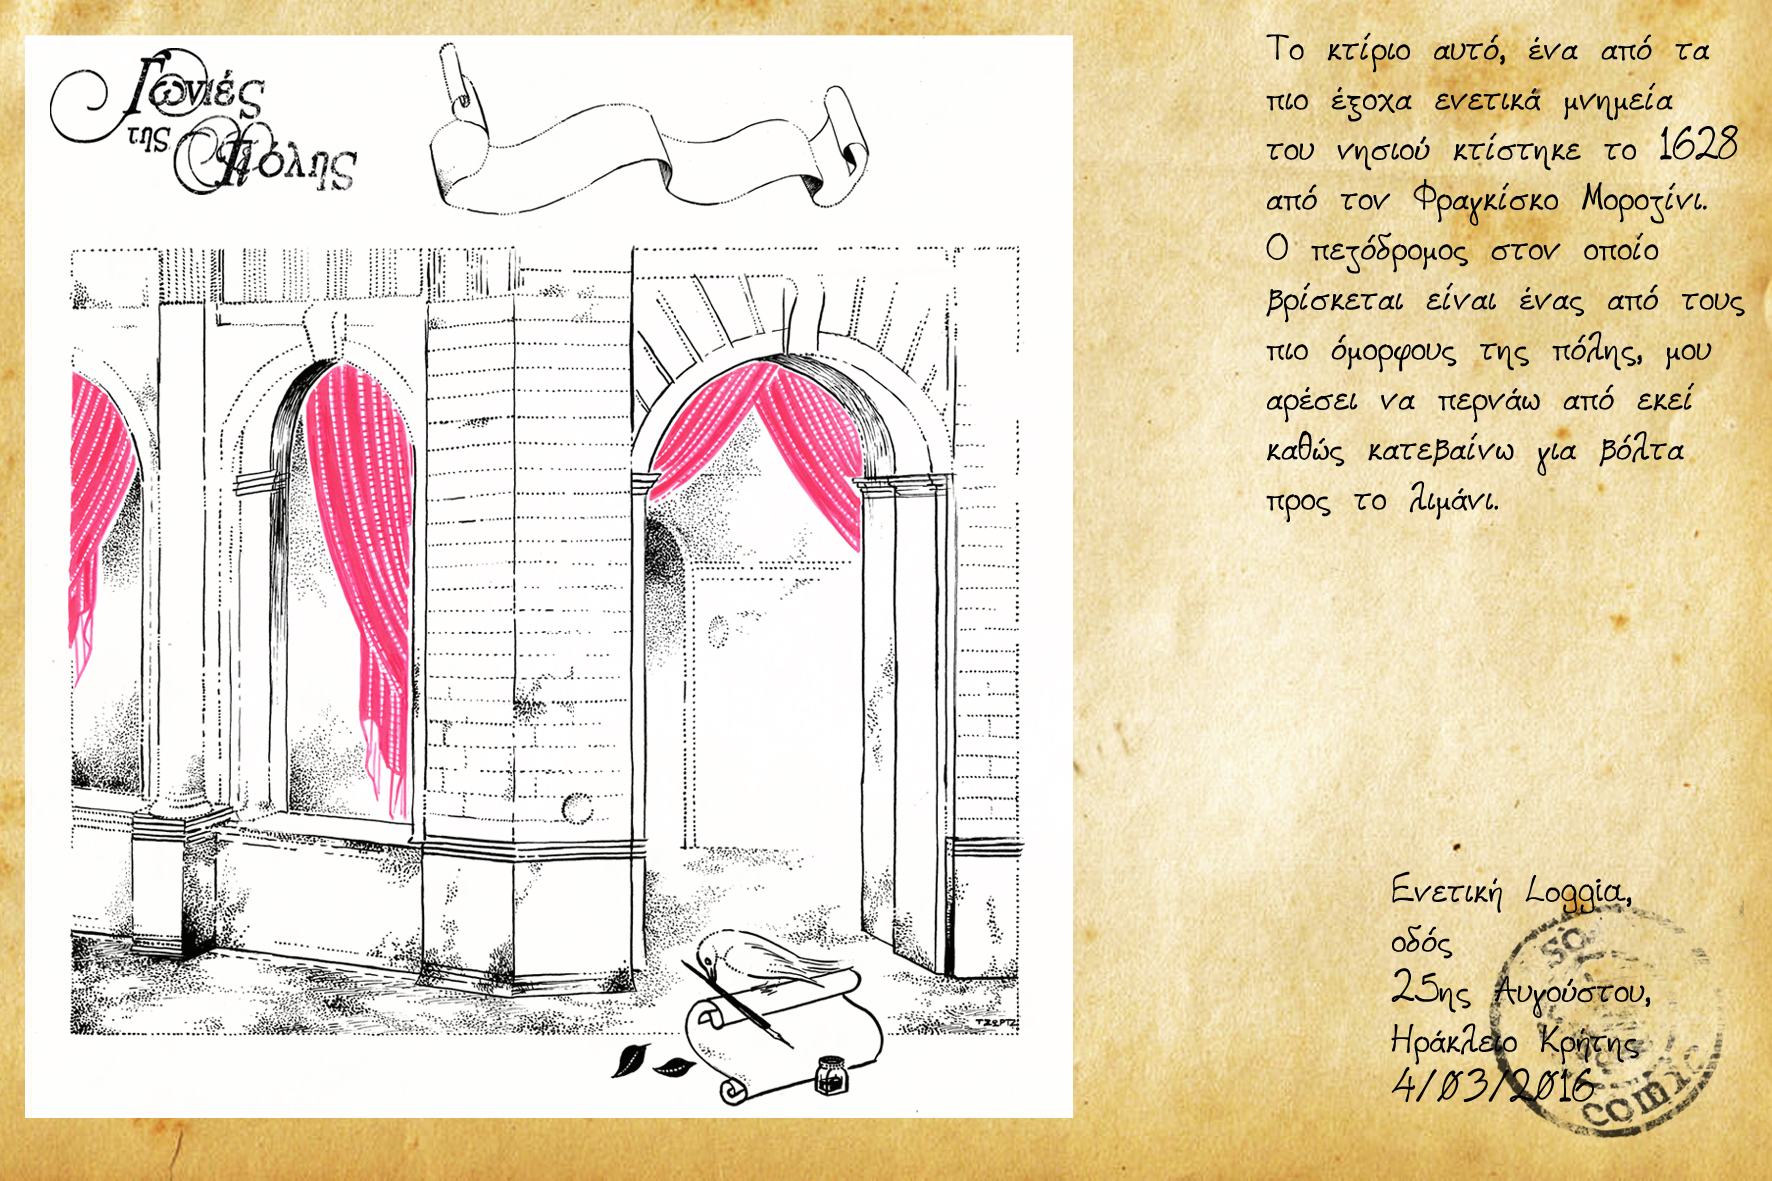 Γωνιές
της Πόλης
Το κτίριο αυτό, ένα από τα
πιο έξοχα ενετικά μνημεία
του νησιού κτίστηκε το 1628
από τον Φραγκίσκο Μοροζίνι.
Ο πεζόδρομος στον οποίο
βρίσκεται είναι ένας από τους
πιο όμορφους της πόλης, μου
αρέσει να περνάω από εκεί
καθώς κατεβαίνω για βόλτα
προς το λιμάνι.
ΤΖΩΡΤΖ
Ενετική Loggia,
οδός
25ης Αυγούστου,
Ηράκλειο Κρήτης
4/03/2016
comic